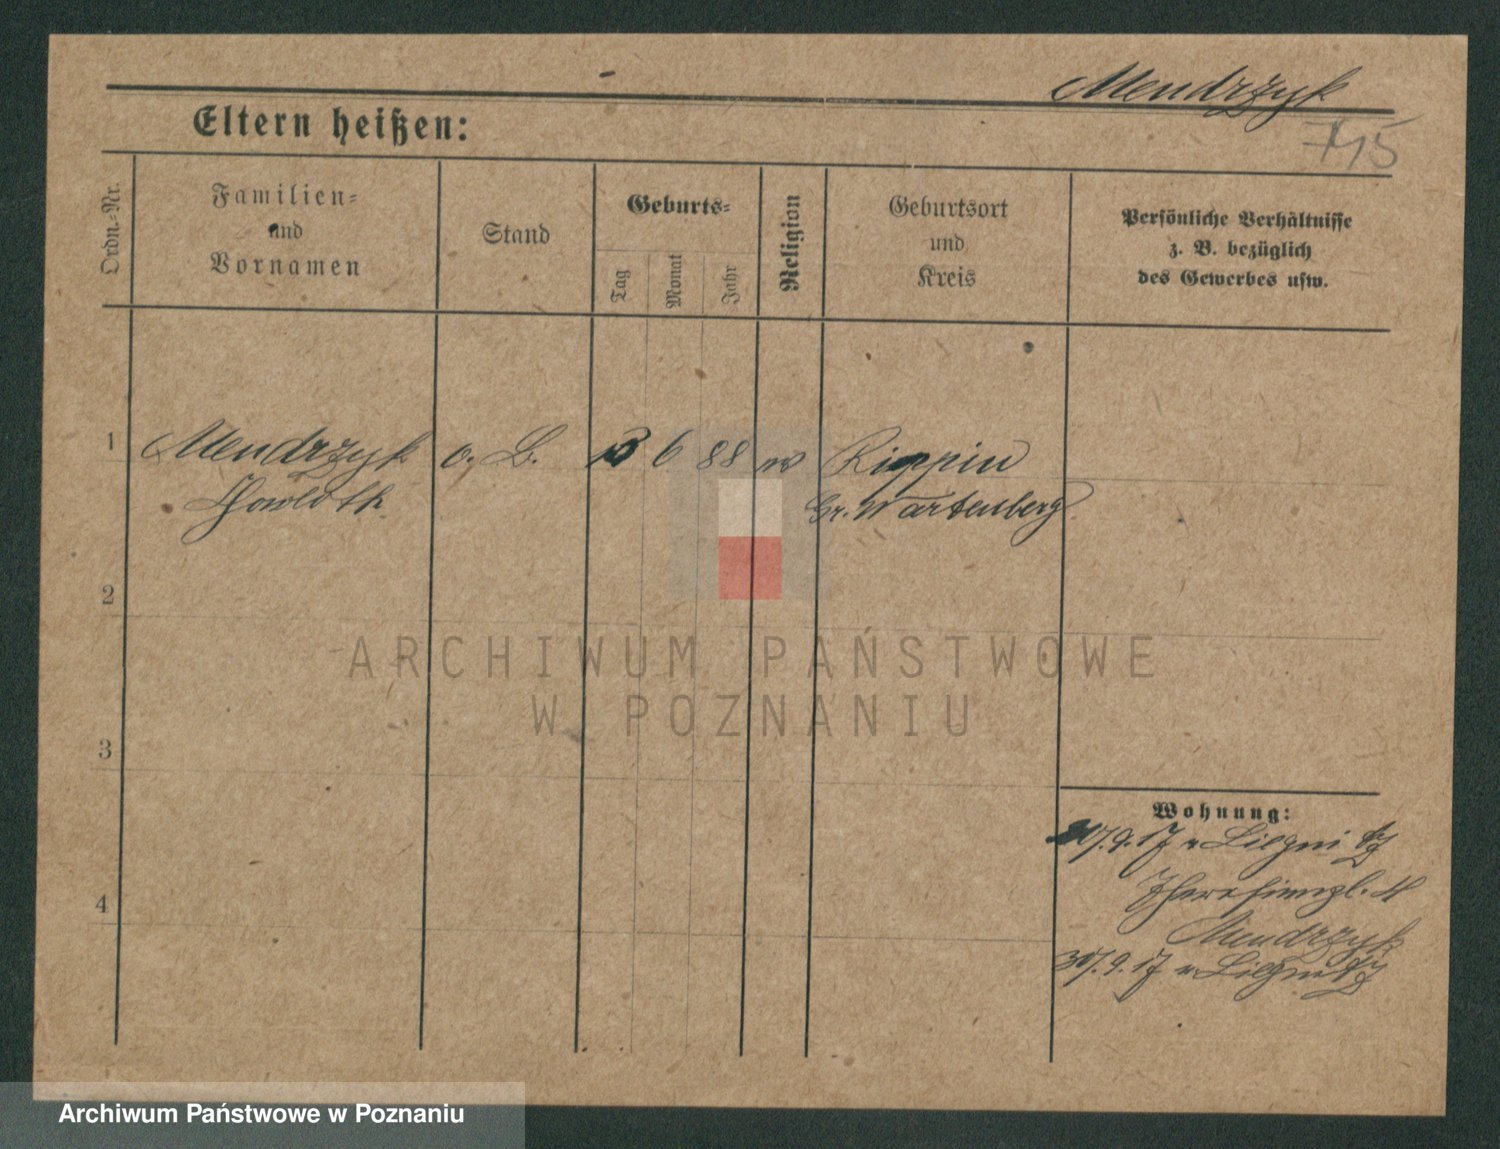 Mendrzyk
Eltern heißen:
745
Ordn.=Nr.
Familien=
und
Vornamen
Stand
Geburts=
Tag
Monat
Jahr
Religion
Geburtsort
und
Kreis
Persönliche Verhältnisse
z. B. bezüglich
des Gewerbes usw.
1
Mendrzyk
o. B.
13
6
88
Rippin
Gr. Wartenberg
2
3
4
Wohnung:
30/.9.17 n Liegnitz
Mendrzyk
30/.9.17 n Liegnitz
ARCHIWUM PAŃSTWOWE
W POZNANIU
Archiwum Państwowe w Poznaniu